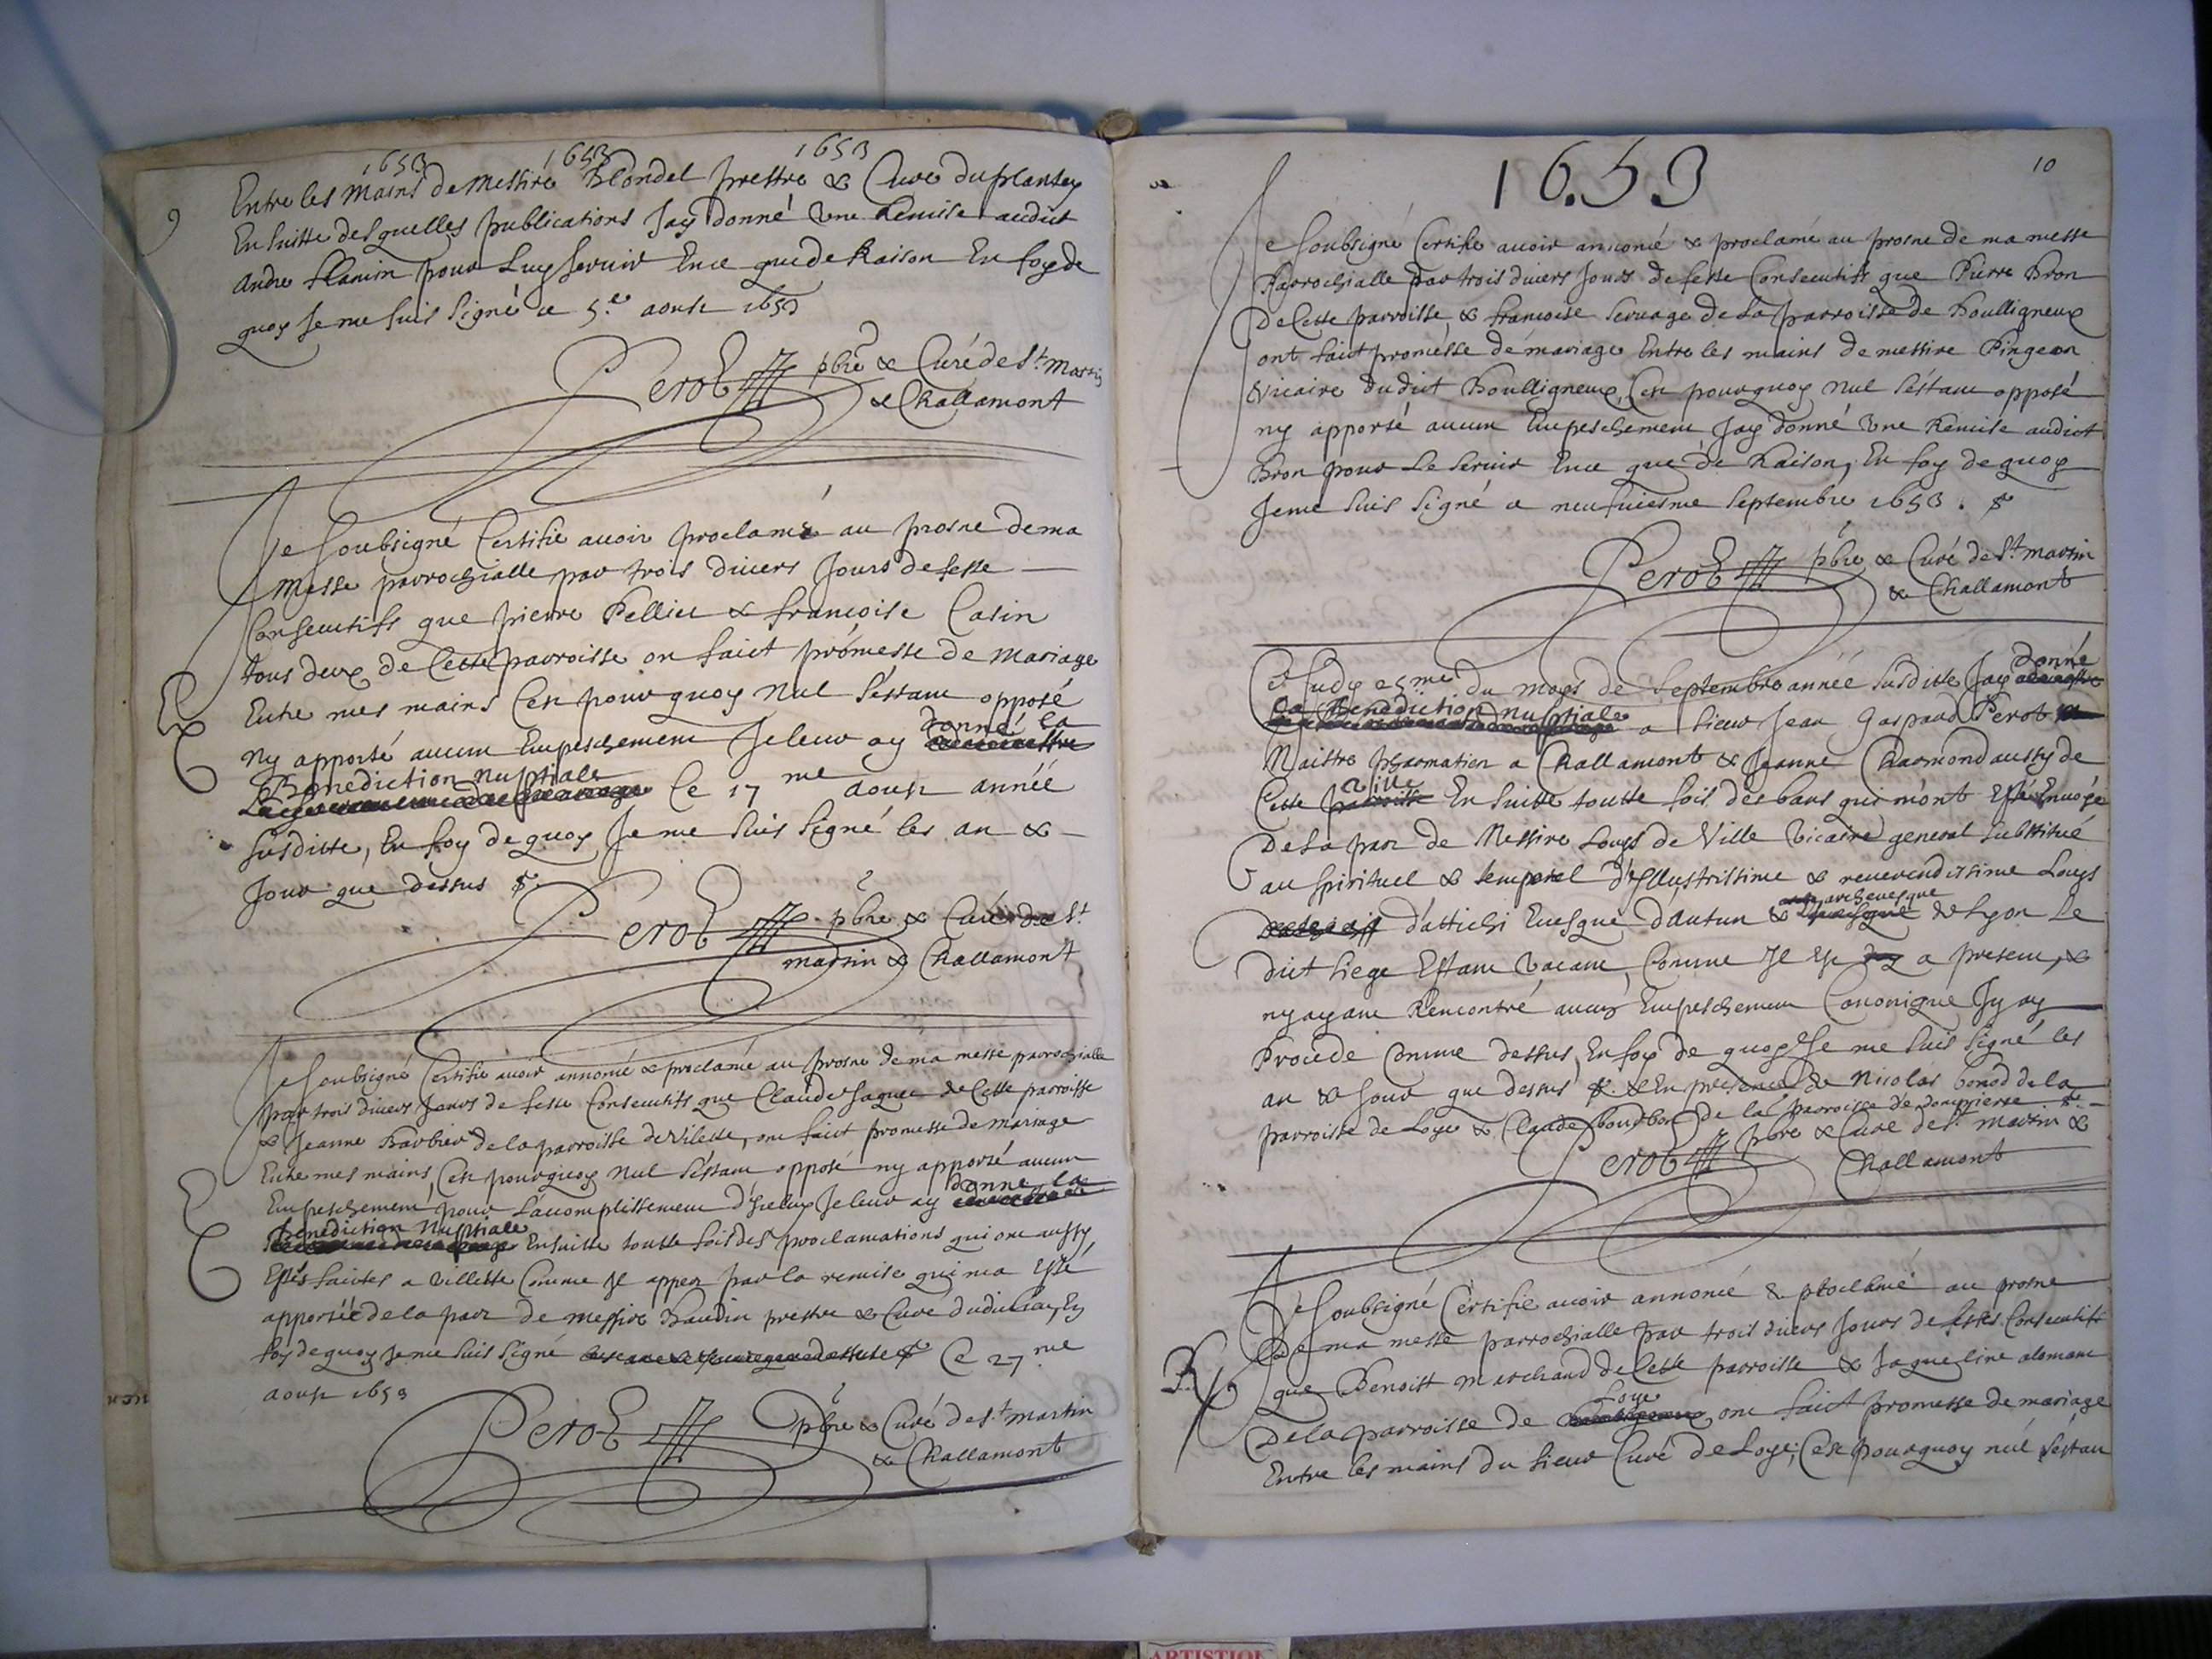 1653 1653 1653
9
Entre les mains de Messire Blondel prestre & Curé du plantey
Ensuitte desquelles publications Jay donné une Remise audict
Andre flamin pour Luy servir En ce que de Raison En foy de
quoy Je me suis signé ce 5.e aoust 1653
Perot pbre & Curé de St. Martin
& Challamont
Je soubsigné Certifie avoir proclamé au prosne de ma
Messe parrochialle par trois divers Jours de feste
Consecutifs que pierre Pellier & francoise Casin
tous deux de Cette parroisse on faict promesse de Mariage
Entre mes mains Cest pourquoy Nul sestant opposé
ny apporté aucun Empeschement Je leur ay donné la
Benediction Nuptiale Ce 17 me aoust année
susditte, En foy de quoy Je me suis signé les an &
Jour que dessus
Perot pbre & Curé de St.
martin & Challamont
Je soubsigné Certifie avoir annoncé & proclamé au prosne de ma messe parrochialle
par trois divers Jours de feste Consecutifs que Claude Jaquet de Cette parroisse
& Jeanne Barbier de la parroisse de Vilette, ont faict promesse de Mariage
Entre mes mains, Cest pourquoy Nul sestant opposé ny apporté aucun
Empeschement pour Laccomplissement dIceluy Je leur ay donné la
Benediction Nuptiale Ensuitte toutte fois des proclamations qui ont aussy
Estés faictes a Villette Comme Il appert par la remise qui ma Esté
apportée de la part de Messire Baudin prestre & Curé dudict lieu, En
foy de quoy Je me suis signé Ce 27 me
aoust 1653
Perot pbre & Curé de St. martin
& Challamont
1653
10
Je soubsigné Certifie avoir annoncé & proclamé au prosne de ma messe
Parrochialle par trois divers Jours de feste Consecutifs que Pierre Bron
De Cette parroisse & francoise Servage de La parroisse de Boulligneux
ont faict promesse de mariage Entre les mains de messire Pingeon
Vicaire du dict Boulligneux, Cest pourquoy Nul sestant opposé
ny apporté aucun Empeschement Jay donné Une Remise audict
Bron pour Le servir En ce que de Raison, En foy de quoy
Je me suis signé ce neufviesme Septembre 1653.
Perot pbre & Curé de St. martin
& Challamont
Ce Judy 25me du moys de Septembre année susditte Jay donné
La Benediction nuptiale a sieur Jean Gaspard Perot
Maistre pharmatien a Challamont & Jeanne Charmond aussy de
Cette ville Ensuitte toutte fois des bans qui mont Esté Envoyé
De La part de Messire Louys de Ville Vicaire general substitué
au spirituel & temporel dIllustrissime & reverendissime Louys
dattichi Evesque dAutun & archevesque de Lyon Le
dict siege Estant Vacant, Comme Il Est a present, &
ny ayant Rencontré aucun Empeschement Canonique Jy ay
Procede Comme dessus, En foy de quoy Je me suis signé les
an & Jour que dessus & En presence de Nicolas bonod de la
parroisse de Loye & Claude bourbon de la parroisse de dompierre
Perot pbre & Curé de St. Martin &
Challamont
Je soubsigné Certifie avoir annoncé & proclamé au prosne
De ma messe parrochialle par trois divers Jours de festes Consecutifs
que Benoist Marchand de Cette parroisse & Jaqueline alemant
De la parroisse de Loye ont faict promesse de mariage
Entre les mains du sieur Curé de Loye, Cest pourquoy nul sestant